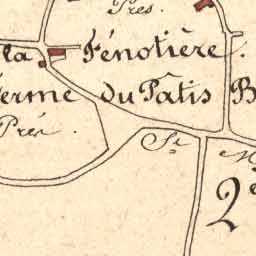 Prés
la Fénotière.
ferme du Pâtis B
Prés
Sr
M
2e